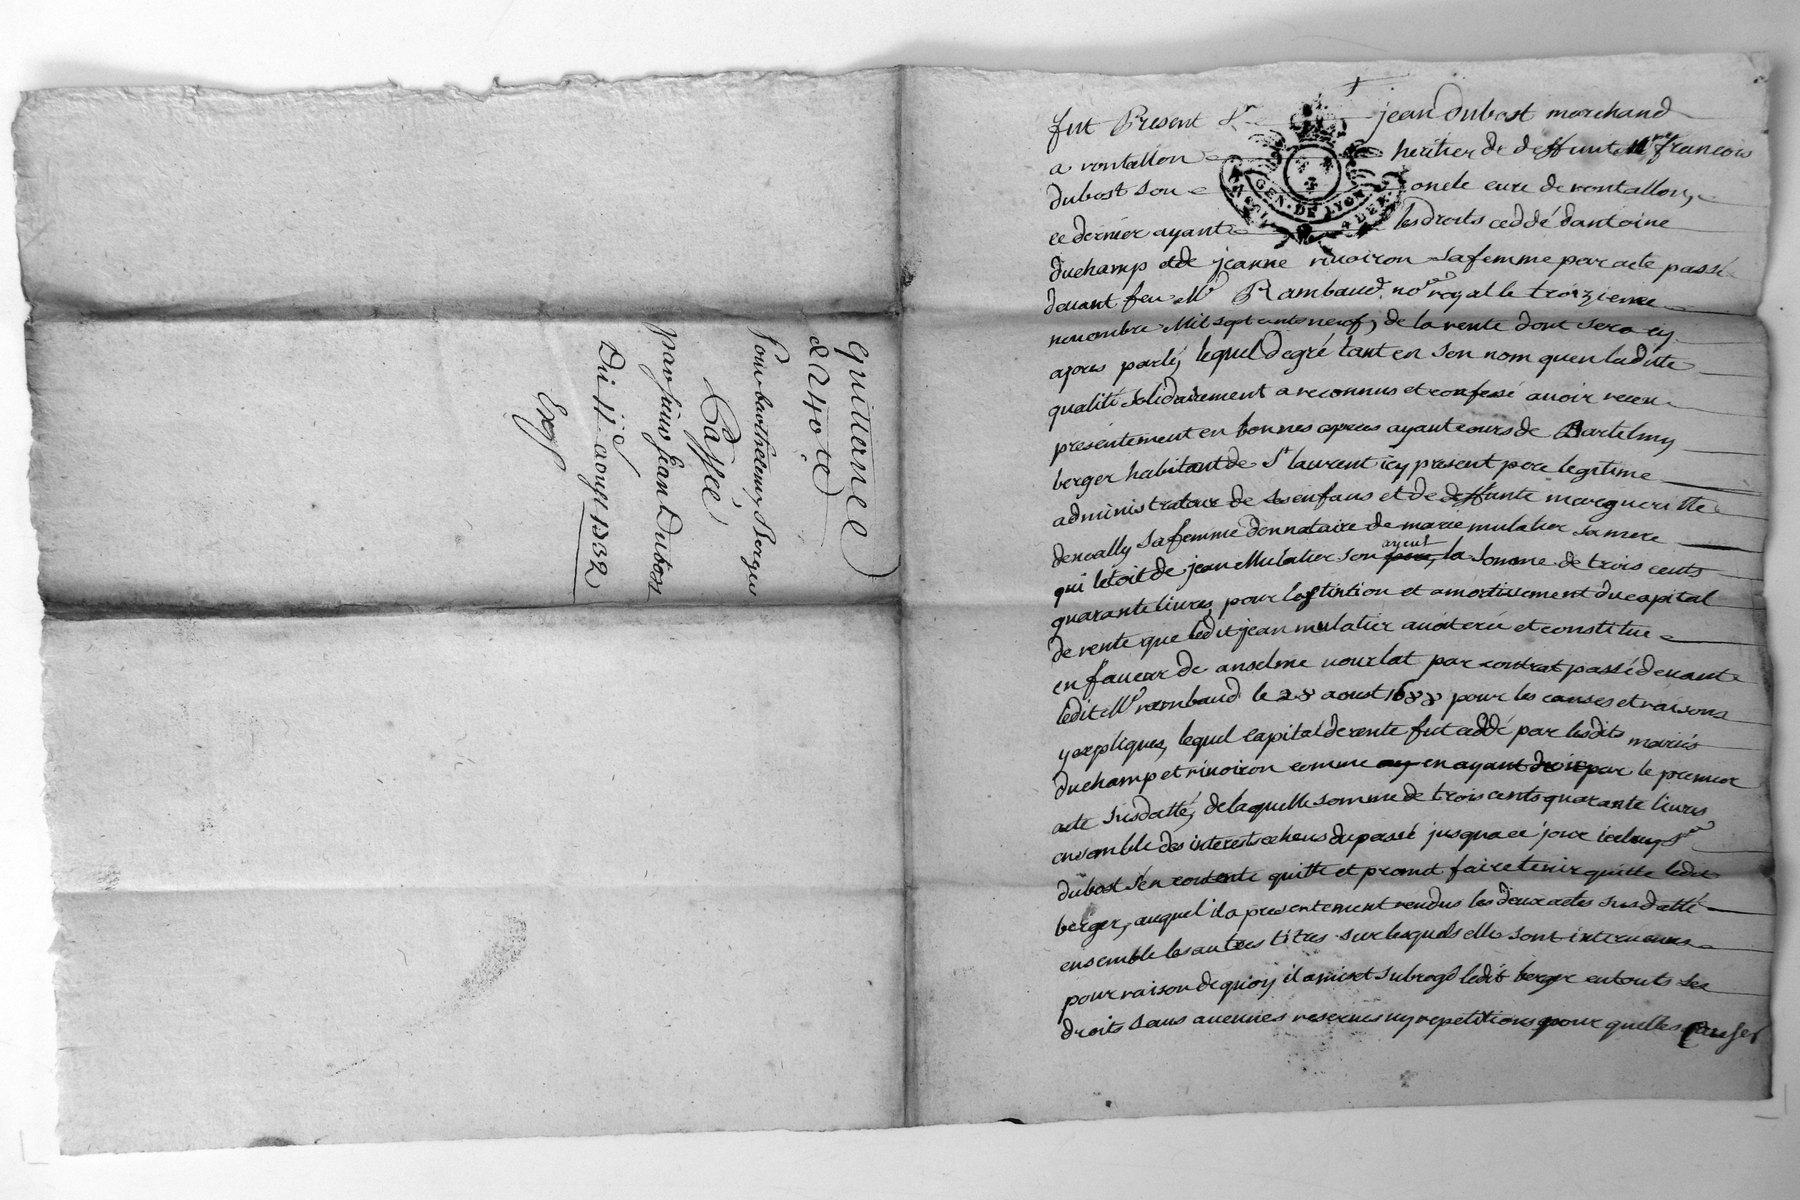 quittance
de 240 lt
Pour barthelemy Berger
Passée
par sieur Jean Dubost
Du 11e aoust 1732
Exp
fut Present Sr jean dubost marchand
a rontallon heritier de deffunt Mre francois
dubost son oncle curé de rontallon,
ce dernier ayant les droits ceddé dantoine
duchamp et de jeanne rivoiron sa femme par acte passé
devant feu Me Rambaud noe royal le troizieme
novembre mil sept cents neuf, de la rente dont sera cy
apres parlé, lequel de gré tant en son nom quen laditte
qualité solidairement a reconnus et confessé avoir receu
presentement en bonnes especes ayant cours de Bartelmy
berger habitant de St laurent icy present pere legitime
administrateur de ses enfans et de deffunte margueritte
deneally sa femme donnataire de marie mulatier sa mere
qui letoit de jean Mulatier son ayeul la somme de trois cents
quarante livres pour lextintion et amortissement du capital
de rente que ledit jean mulatier avoit créé et constitué
en faveur de anselme vourlat par contrat passé devant
ledit Me rambaud le 28 aoust 1688 pour les causes et raisons
y expliques, lequel capital de rente fut ceddé par lesdits mariés
duchamp et rivoiron comme en ayant droit par le premier
acte susdatté, de laquelle somme de trois cents quarante livres
ensemble des interests echeus du passé jusqua ce jour iceluy Sr
dubost sen contente quitte et promet faire tenir quitte ledit
berger, auquel il a presentement rendus les deux actes susdatté
ensemble les autres titres sur lesquels elle sont intervenus
pour raison de quoy il a mis et subrogé ledit berger en touts ses
droits sans aucunes reserves ny repetitions pour quelles causes
GEN. DE LYON